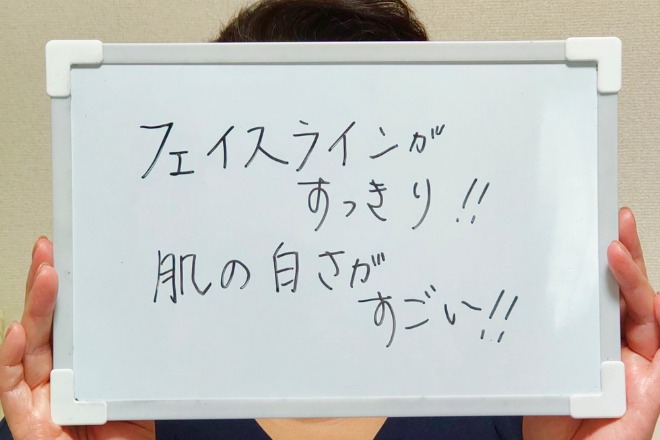 フェイスラインが
すっきり!!
肌の白さが
すごい!!